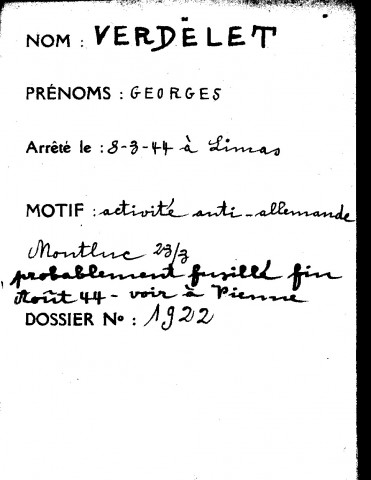 NOM : VERDELET
PRÉNOMS : GEORGES
Arrêté le : 8-3-44 à Limas
MOTIF : activité anti-allemande
Montluc 23/3
probablement fusillé fin
Août 44 - voir à Vienne
DOSSIER No : 1922